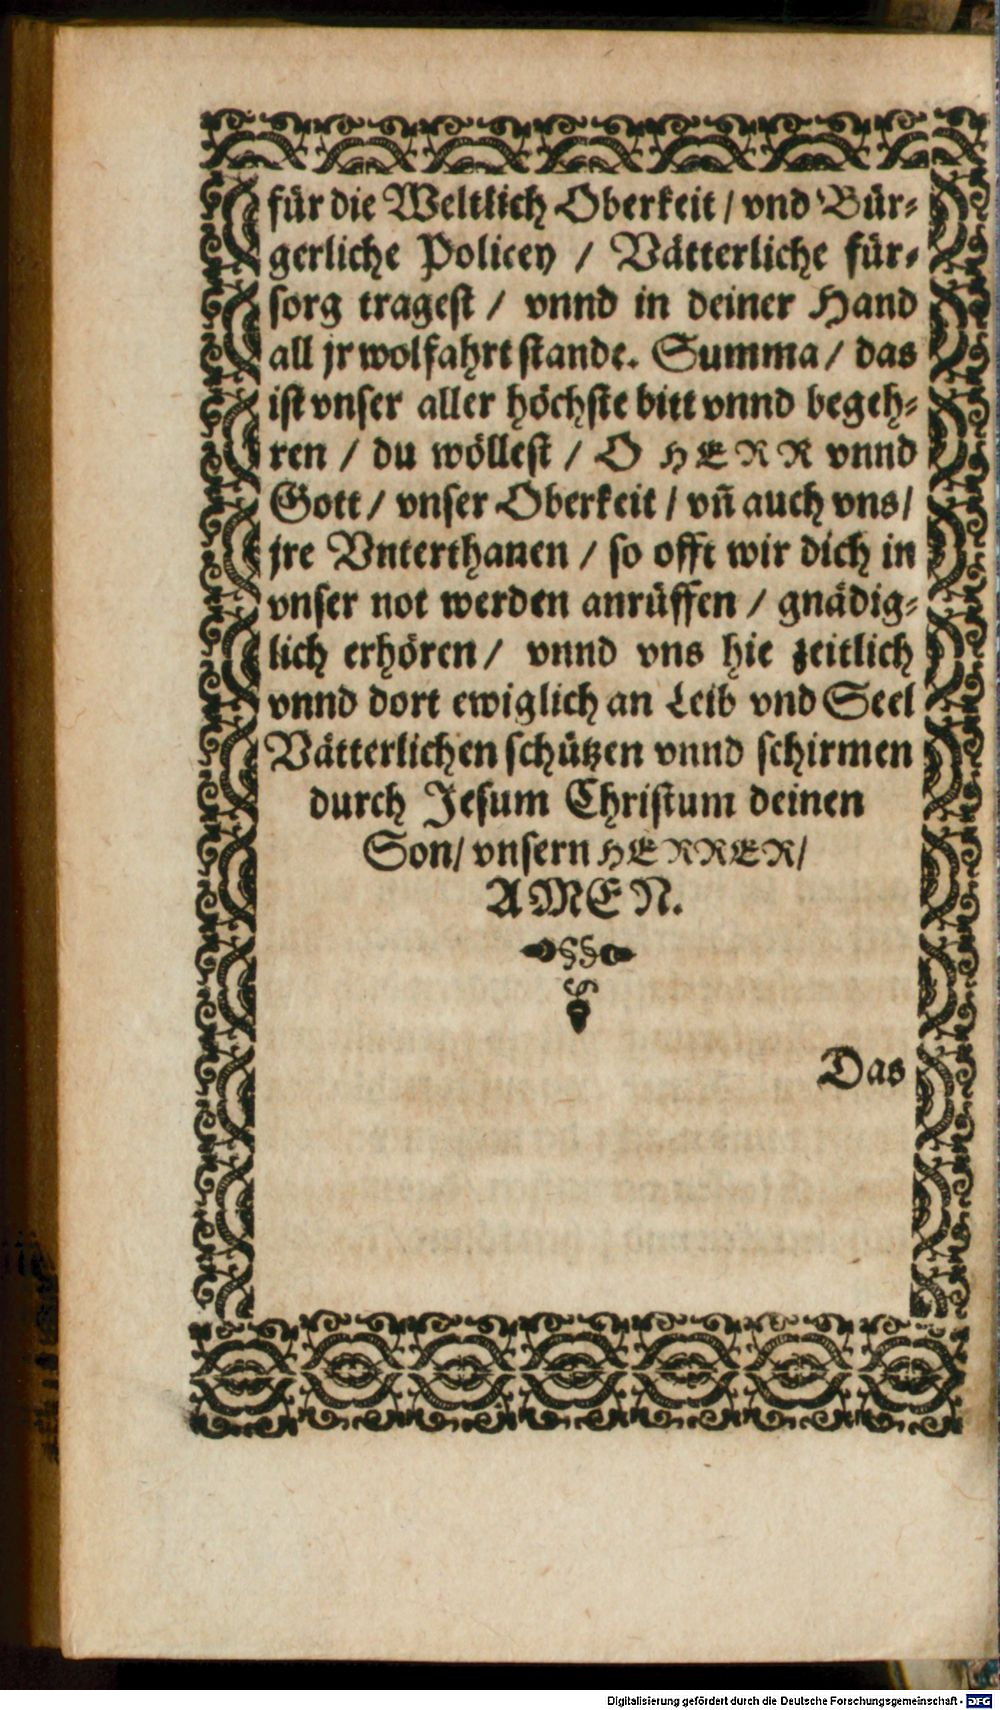 für die Weltlich Oberkeit / vnd Bür-
gerliche Policey / Vätterliche für-
sorg tragest / vnnd in deiner Hand
all jr wolfahrt stande. Summa / das
ist vnser aller höchste bitt vnnd begeh-
ren / du wöllest / O HERR vnnd
Gott / vnser Oberkeit / vñ auch vns /
jre Vnterthanen / so offt wir dich in
vnser not werden anrüffen / gnädig-
lich erhören / vnnd vns hie zeitlich
vnnd dort ewiglich an Leib vnd Seel
Vätterlichen schützen vnnd schirmen
durch Jesum Christum deinen
Son / vnsern HERRER /
AMEN.
Das
Digitalisierung gefördert durch die Deutsche Forschungsgemeinschaft - DFG